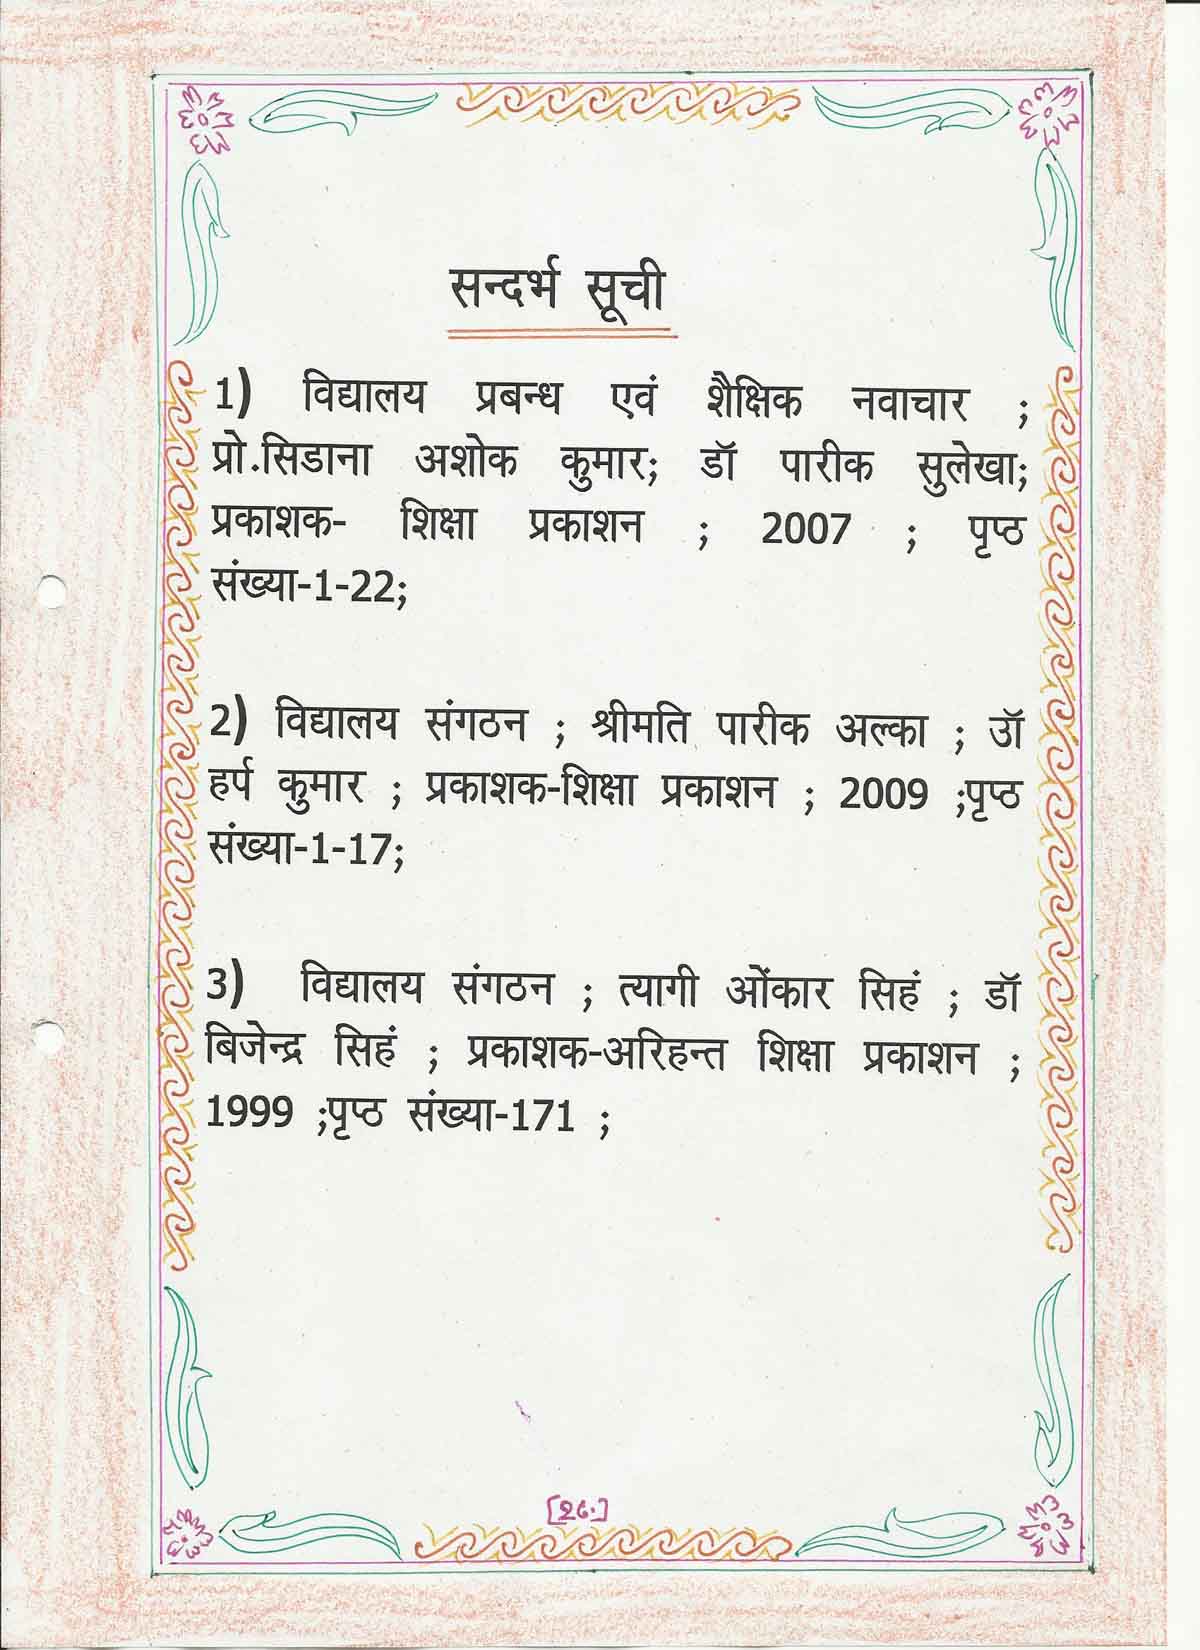 सन्दर्भ सूची
1) विद्यालय प्रबन्ध एवं शैक्षिक नवाचार ;
प्रो.सिडाना अशोक कुमार; डॉ पारीक सुलेखा;
प्रकाशक- शिक्षा प्रकाशन ; 2007 ; पृप्ठ
संख्या-1-22;
2) विद्यालय संगठन ; श्रीमति पारीक अल्का ; उॉ
हर्प कुमार ; प्रकाशक-शिक्षा प्रकाशन ; 2009 ;पृप्ठ
संख्या-1-17;
3) विद्यालय संगठन ; त्यागी ओंकार सिहं ; डॉ
बिजेन्द्र सिहं ; प्रकाशक-अरिहन्त शिक्षा प्रकाशन ;
1999 ;पृप्ठ संख्या-171 ;